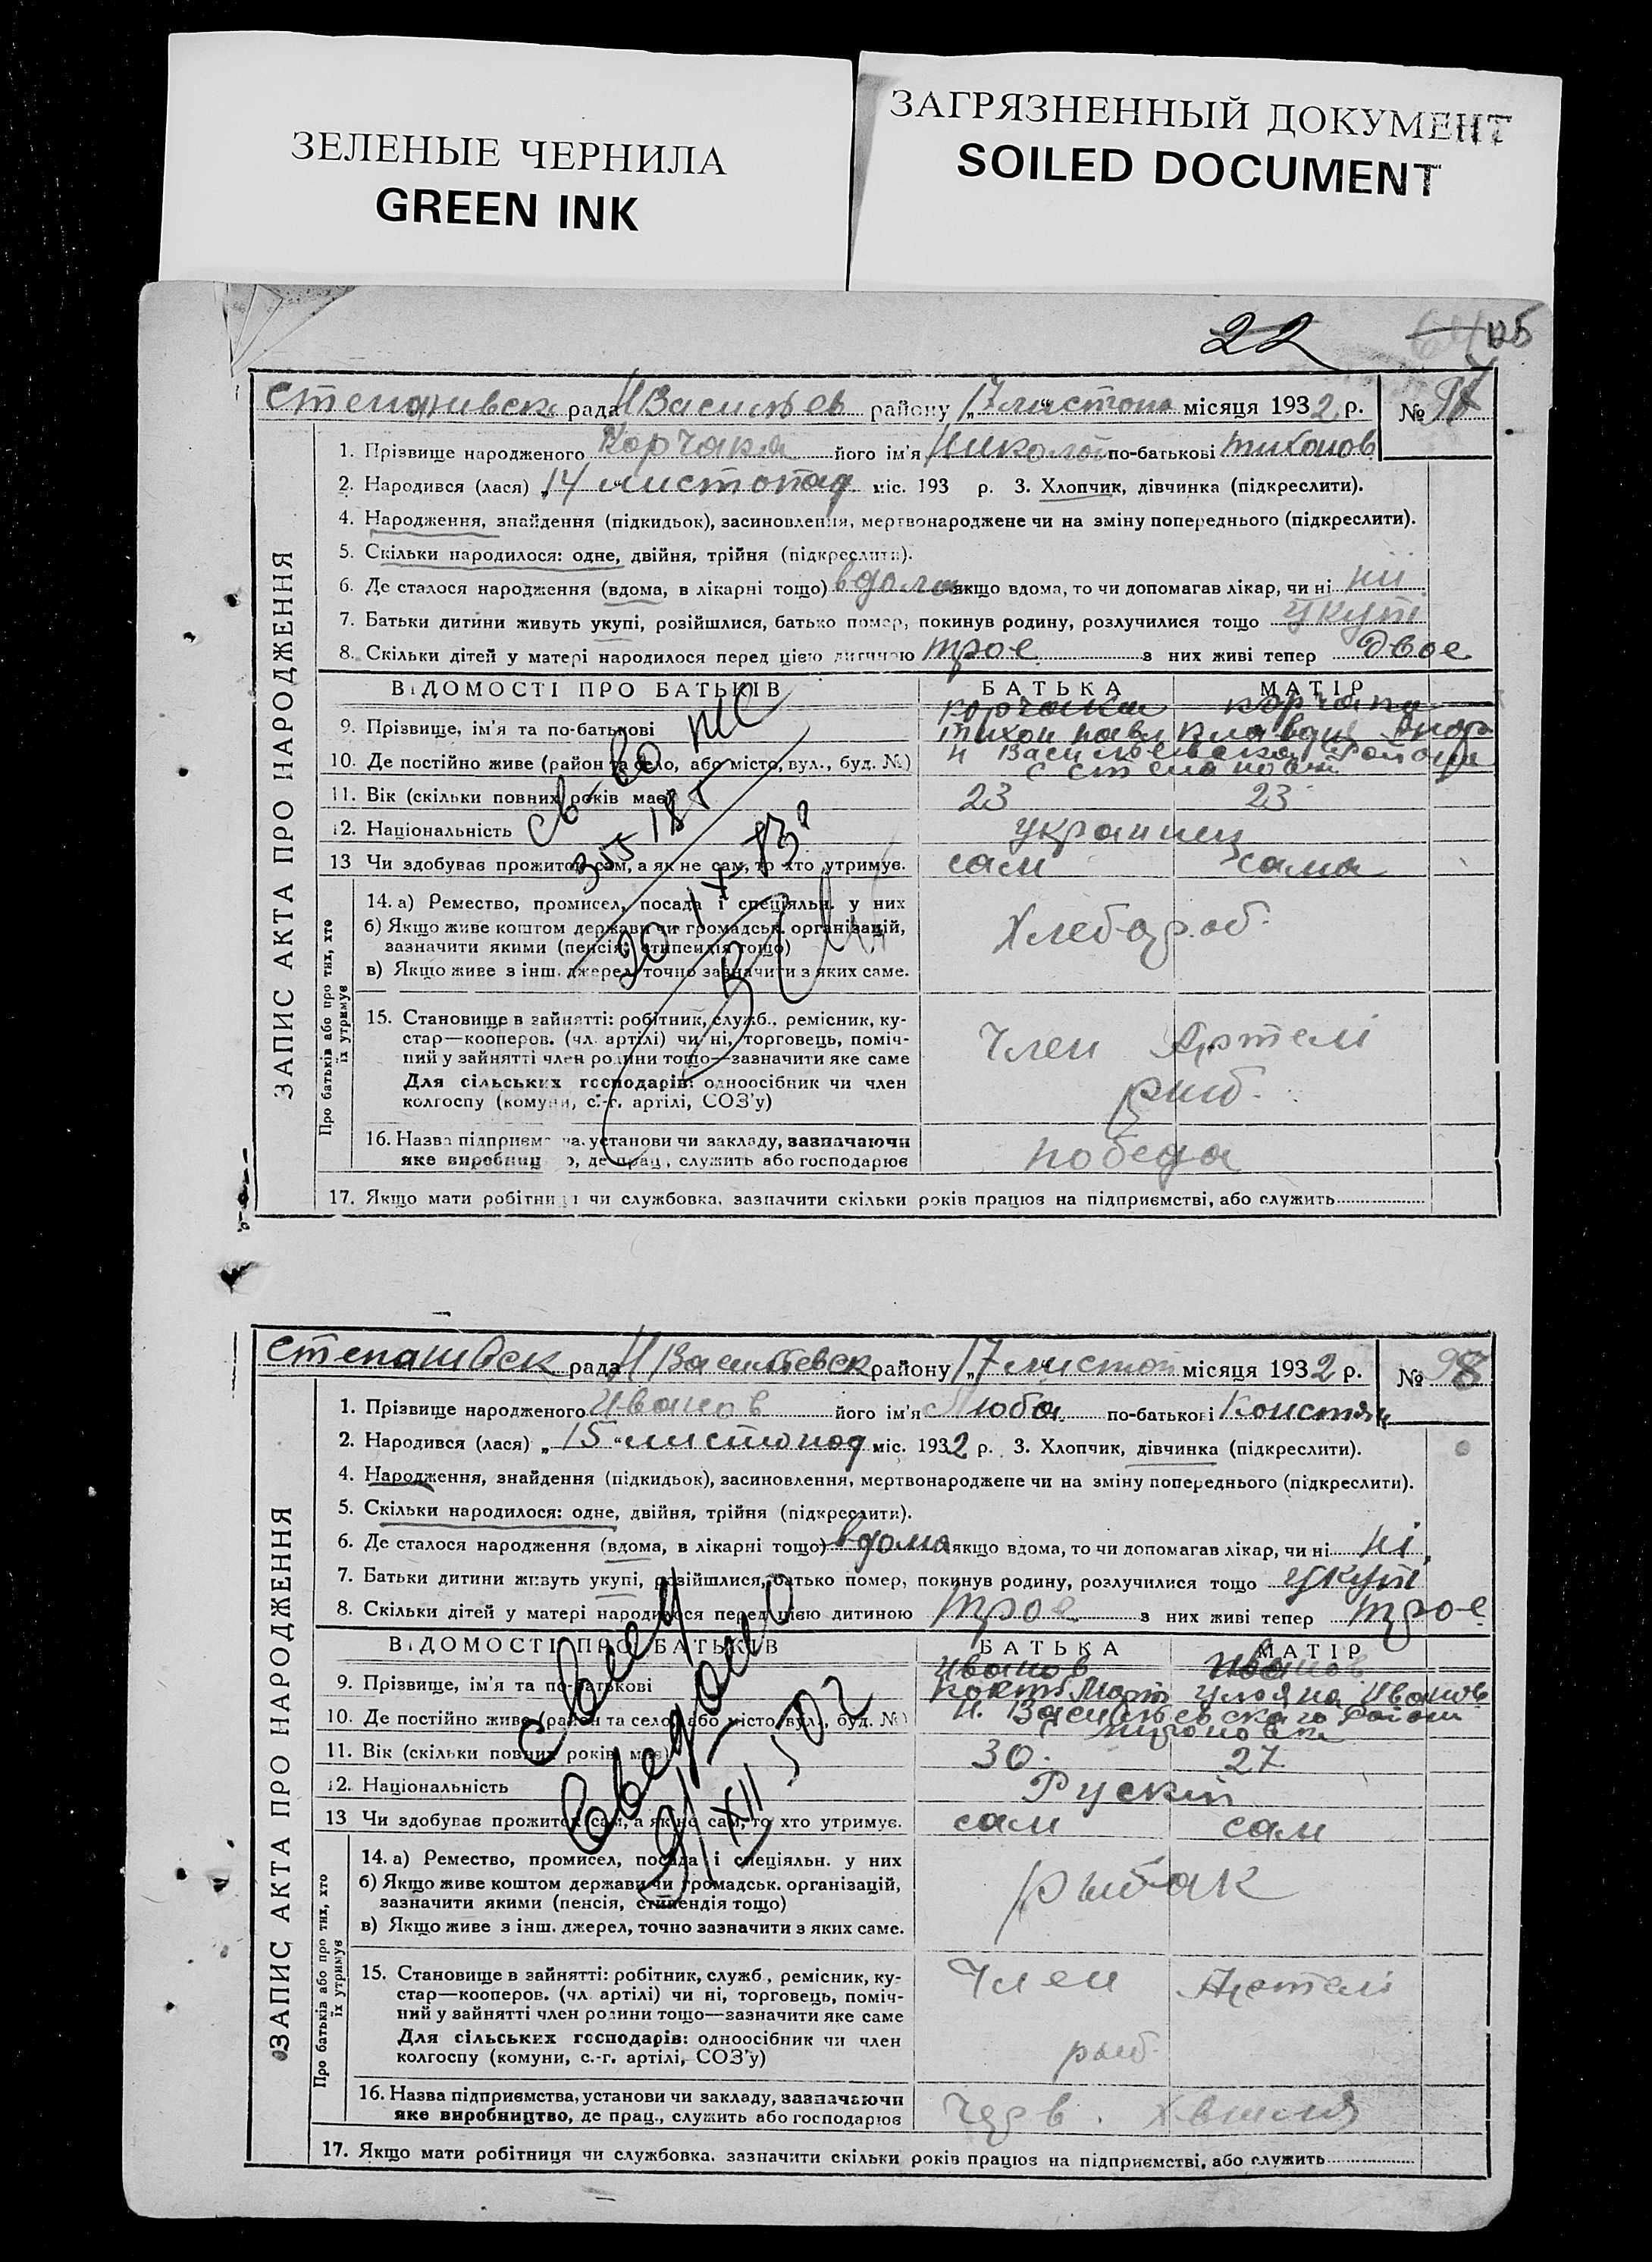 ЗЕЛЕНЫЕ ЧЕРНИЛА
GREEN INK
ЗАГРЯЗНЕННЫЙ ДОКУМЕНТ
SOILED DOCUMENT
22
Степанивск рада Н Васильев району „17 листопа місяця 1932 р. №
ЗАПИС АКТА ПРО НАРОДЖЕННЯ
1. Прізвище народженого Корчака його ім'я Николай по-батькові Тихонов
2. Народився (лася) „14“ листопад міс. 193 р. 3. Хлопчик, дівчинка (підкреслити).
4. Народження, знайдення (підкидьок), засиновлення, мертвонароджене чи на зміну попереднього (підкреслити).
5. Скільки народилося: одне, двійня, трійня (підкреслити).
6. Де сталося народження (вдома, в лікарні тощо) вдома якщо вдома, то чи допомагав лікар, чи ні ни
7. Батьки дитини живуть укупі, розійшлися, батько помер, покинув родину, розлучилися тощо укупі
8. Скільки дітей у матері народилося перед цією дитиною трое з них живі тепер двое
ВІДОМОСТІ ПРО БАТЬКІВ БАТЬКА МАТІР
9. Прізвище, ім'я та по-батькові Корчака Тихон Павл
10. Де постійно живе (район та село, або місто, вул., буд. №) Н Васильевска Района
11. Вік (скільки повних років має) 23 23
12. Національність украинец
13 Чи здобуває прожиток сам, а як не сам, то хто утримує. сам сама
Про батьків або про тих, хто їх утримує
14. а) Ремество, промисел, посада і спеціяльн. у них
б) Якщо живе коштом держави чи громадськ. організацій,
зазначити якими (пенсія, стипендія тощо)
в) Якщо живе з інш. джерел, точно зазначити з яких саме.
Хлебороб.
15. Становище в зайнятті: робітник, служб., ремісник, ку-
стар—кооперов. (чл. артілі) чи ні, торговець, поміч-
ний у зайнятті член родини тощо—зазначити яке саме
Для сільських господарів: одноосібник чи член
колгоспу (комуни, с.-г. артілі, СОЗ'у)
Член Артелі
риб.
16. Назва підприємства, установи чи закладу, зазначаючи
яке виробництво, де прац., служить або господарює
победа
17. Якщо мати робітниця чи службовка. зазначити скільки років працює на підприємстві, або служить
Степанивск рада Н Васильевск району „17 листоп місяця 1932 р. № 98
ЗАПИС АКТА ПРО НАРОДЖЕННЯ
1. Прізвище народженого Иванов його ім'я Люба по-батькові Констян
2. Народився (лася) „15“ листопод міс. 1932 р. 3. Хлопчик, дівчинка (підкреслити).
4. Народження, знайдення (підкидьок), засиновлення, мертвонароджене чи на зміну попереднього (підкреслити).
5. Скільки народилося: одне, двійня, трійня (підкреслити).
6. Де сталося народження (вдома, в лікарні тощо) вдома якщо вдома, то чи допомагав лікар, чи ні ні
7. Батьки дитини живуть укупі, розійшлися, батько помер, покинув родину, розлучилися тощо укупі
8. Скільки дітей у матері народилося перед цією дитиною трое з них живі тепер трое
ВІДОМОСТІ ПРО БАТЬКІВ БАТЬКА МАТІР
9. Прізвище, ім'я та по-батькові Иванов Иванов Уляна Иванов
10. Де постійно живе (район та село, або місто, вул., буд. №) Н. Васильевского Район
11. Вік (скільки повних років має) 30. 27
12. Національність Рускій
13 Чи здобуває прожиток сам, а як не сам, то хто утримує. сам сам
Про батьків або про тих, хто їх утримує
14. а) Ремество, промисел, посада і спеціяльн. у них
б) Якщо живе коштом держави чи громадськ. організацій,
зазначити якими (пенсія, стипендія тощо)
в) Якщо живе з інш. джерел, точно зазначити з яких саме.
рыбак
15. Становище в зайнятті: робітник, служб., ремісник, ку-
стар—кооперов. (чл. артілі) чи ні, торговець, поміч-
ний у зайнятті член родини тощо—зазначити яке саме
Для сільських господарів: одноосібник чи член
колгоспу (комуни, с.-г. артілі, СОЗ'у)
Член Артелі
рыб.
16. Назва підприємства, установи чи закладу, зазначаючи
яке виробництво, де прац., служить або господарює
Черв. Хвиля
17. Якщо мати робітниця чи службовка. зазначити скільки років працює на підприємстві, або служить